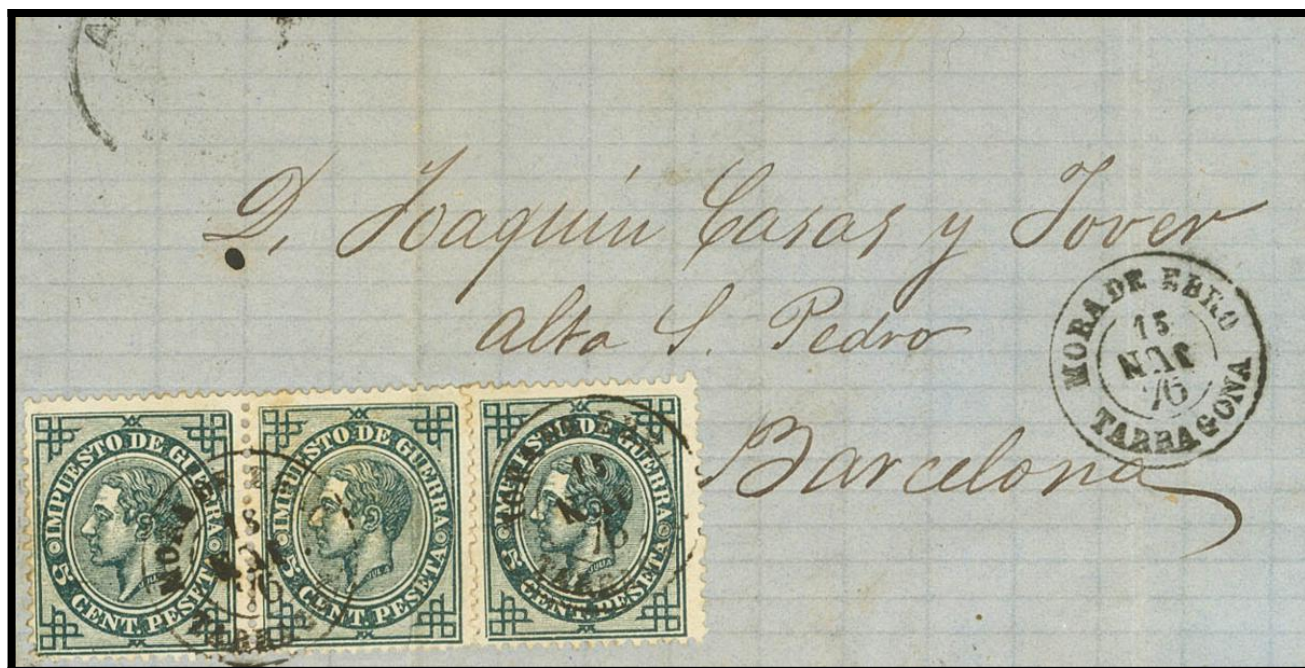 D. Joaquín Casas y Jover
Alta S. Pedro
Barcelona
MORA DE EBRO
15
76
TARRAGONA
IMPUESTO DE GUERRA
5 CENT. PESETA
IMPUESTO DE GUERRA
5 CENT. PESETA
IMPUESTO DE GUERRA
5 CENT. PESETA